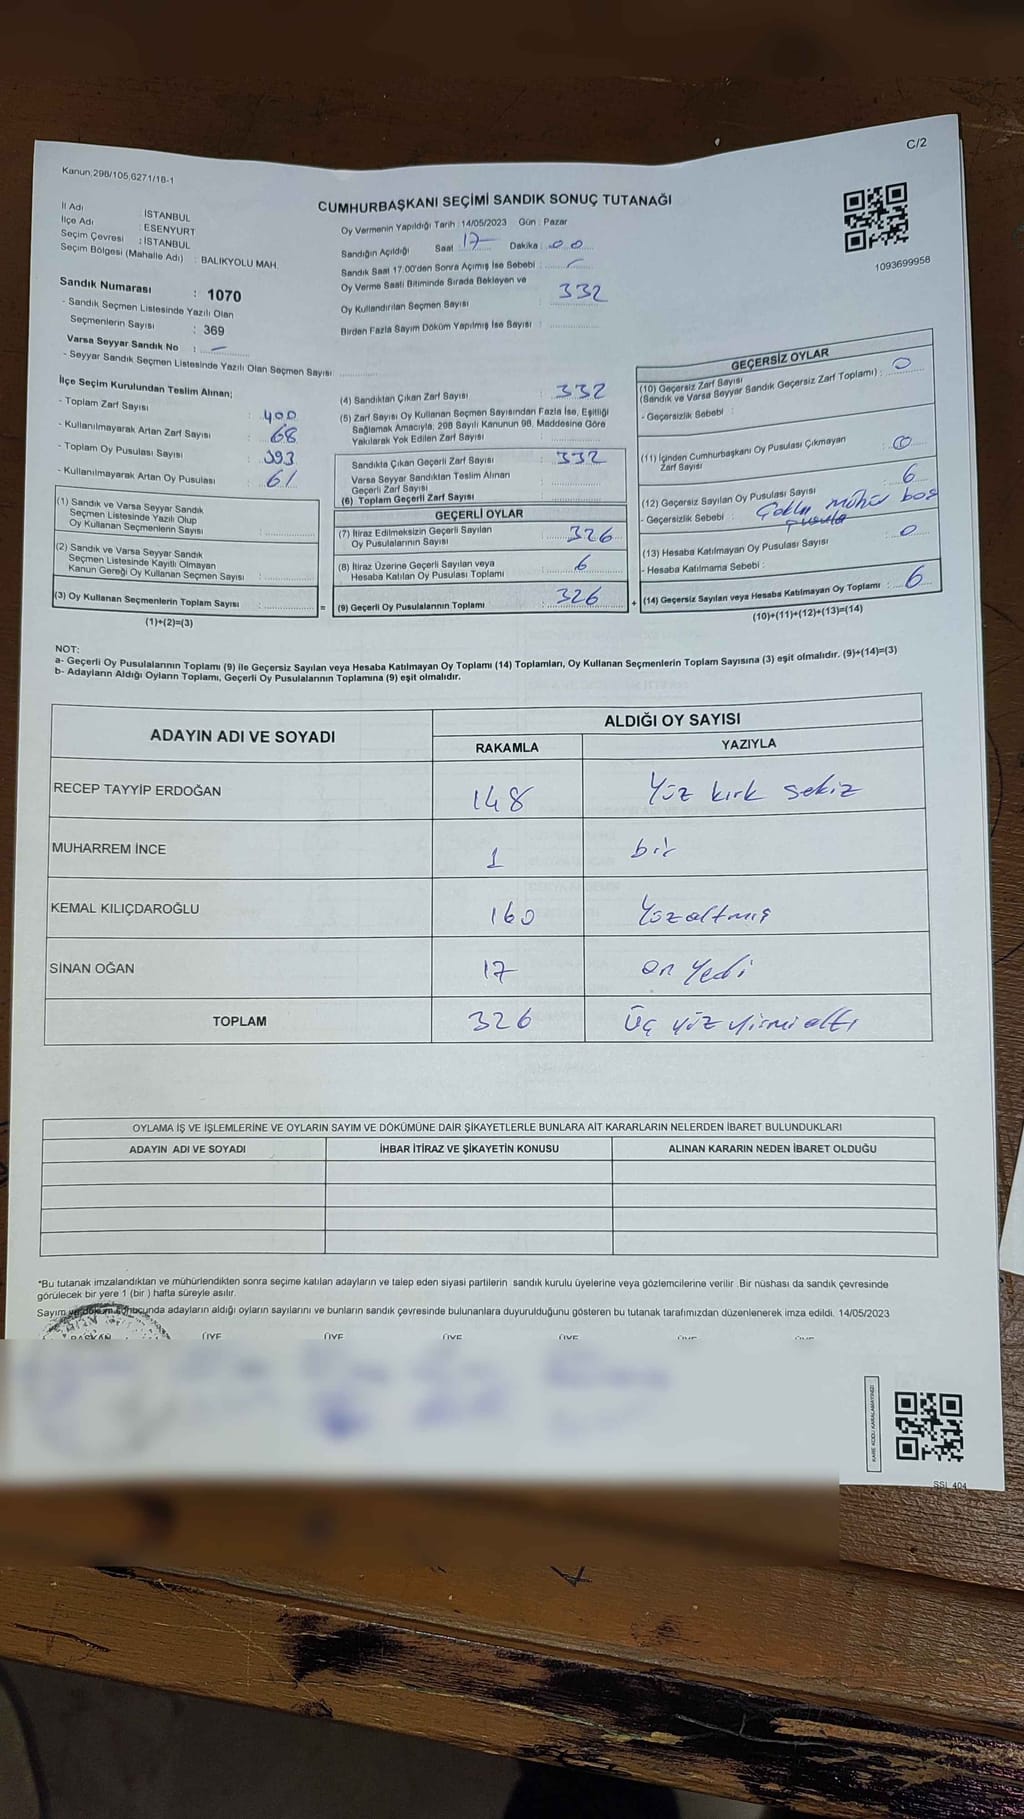 C/2
Kanun 298/105,6271/18-1
CUMHURBAŞKANI SEÇİMİ SANDIK SONUÇ TUTANAĞI
1093699958
İl Adı : İSTANBUL
İlçe Adı : ESENYURT
Seçim Çevresi : İSTANBUL
Seçim Bölgesi (Mahalle Adı) : BALIKYOLU MAH.
Sandık Numarası : 1070
- Sandık Seçmen Listesinde Yazılı Olan
Seçmenlerin Sayısı : 369
Varsa Seyyar Sandık No : -
- Seyyar Sandık Seçmen Listesinde Yazılı Olan Seçmen Sayısı
Oy Vermenin Yapıldığı Tarih : 14/05/2023 Gün : Pazar
Sandığın Açıldığı Saat : 17 Dakika : 00
Sandık Saat 17:00'den Sonra Açımış İse Sebebi : -
Oy Verme Saati Bitiminde Sırada Bekleyen ve
Oy Kullandırılan Seçmen Sayısı : 332
Birden Fazla Sayım Döküm Yapılmış İse Sayısı :
İlçe Seçim Kurulundan Teslim Alınan;
- Toplam Zarf Sayısı : 400
- Kullanılmayarak Artan Zarf Sayısı : 68
- Toplam Oy Pusulası Sayısı : 393
- Kullanılmayarak Artan Oy Pusulası : 61
(1) Sandık ve Varsa Seyyar Sandık
Seçmen Listesinde Yazılı Olup
Oy Kullanan Seçmenlerin Sayısı :
(2) Sandık ve Varsa Seyyar Sandık
Seçmen Listesinde Kayıtlı Olmayan
Kanun Gereği Oy Kullanan Seçmen Sayısı :
(3) Oy Kullanan Seçmenlerin Toplam Sayısı : =
(1)+(2)=(3)
(4) Sandıktan Çıkan Zarf Sayısı : 332
(5) Zarf Sayısı Oy Kullanan Seçmen Sayısından Fazla İse, Eşitliği
Sağlamak Amacıyla, 298 Sayılı Kanunun 98. Maddesine Göre
Yakılarak Yok Edilen Zarf Sayısı :
Sandıkta Çıkan Geçerli Zarf Sayısı : 332
Varsa Seyyar Sandıktan Teslim Alınan
Geçerli Zarf Sayısı :
(6) Toplam Geçerli Zarf Sayısı :
GEÇERLİ OYLAR
(7) İtiraz Edilmeksizin Geçerli Sayılan
Oy Pusulalarının Sayısı : 326
(8) İtiraz Üzerine Geçerli Sayılan veya
Hesaba Katılan Oy Pusulası Toplamı : 6
(9) Geçerli Oy Pusulalarının Toplamı : 326 +
GEÇERSİZ OYLAR
(10) Geçersiz Zarf Sayısı
(Sandık ve Varsa Seyyar Sandık Geçersiz Zarf Toplamı) : 0
- Geçersizlik Sebebi :
(11) İçinden Cumhurbaşkanı Oy Pusulası Çıkmayan
Zarf Sayısı : 0
(12) Geçersiz Sayılan Oy Pusulası Sayısı : 6
- Geçersizlik Sebebi : Çoklu mühür boş
pusula
(13) Hesaba Katılmayan Oy Pusulası Sayısı : 0
- Hesaba Katılmama Sebebi :
(14) Geçersiz Sayılan veya Hesaba Katılmayan Oy Toplamı : 6
(10)+(11)+(12)+(13)=(14)
NOT:
a- Geçerli Oy Pusulalarının Toplamı (9) ile Geçersiz Sayılan veya Hesaba Katılmayan Oy Toplamı (14) Toplamları, Oy Kullanan Seçmenlerin Toplam Sayısına (3) eşit olmalıdır. (9)+(14)=(3)
b- Adayların Aldığı Oyların Toplamı, Geçerli Oy Pusulalarının Toplamına (9) eşit olmalıdır.
ADAYIN ADI VE SOYADI ALDIĞI OY SAYISI
RAKAMLA YAZIYLA
RECEP TAYYİP ERDOĞAN 148 Yüz kırk sekiz
MUHARREM İNCE 1 bir
KEMAL KILIÇDAROĞLU 160 Yüzaltmış
SİNAN OĞAN 17 on yedi
TOPLAM 326 Üç yüz yirmialtı
OYLAMA İŞ VE İŞLEMLERİNE VE OYLARIN SAYIM VE DÖKÜMÜNE DAİR ŞİKAYETLERLE BUNLARA AİT KARARLARIN NELERDEN İBARET BULUNDUKLARI
ADAYIN ADI VE SOYADI İHBAR İTİRAZ VE ŞİKAYETİN KONUSU ALINAN KARARIN NEDEN İBARET OLDUĞU
*Bu tutanak imzalandıktan ve mühürlendikten sonra seçime katılan adayların ve talep eden siyasi partilerin sandık kurulu üyelerine veya gözlemcilerine verilir. Bir nüshası da sandık çevresinde
görülecek bir yere 1 (bir ) hafta süreyle asılır.
Sayım ve döküm sonucunda adayların aldığı oyların sayılarını ve bunların sandık çevresinde bulunanlara duyurulduğunu gösteren bu tutanak tarafımızdan düzenlenerek imza edildi. 14/05/2023
BAŞKAN ÜYE ÜYE ÜYE ÜYE ÜYE
KARE KODU KARALAMAYINIZ!
SSİ 404